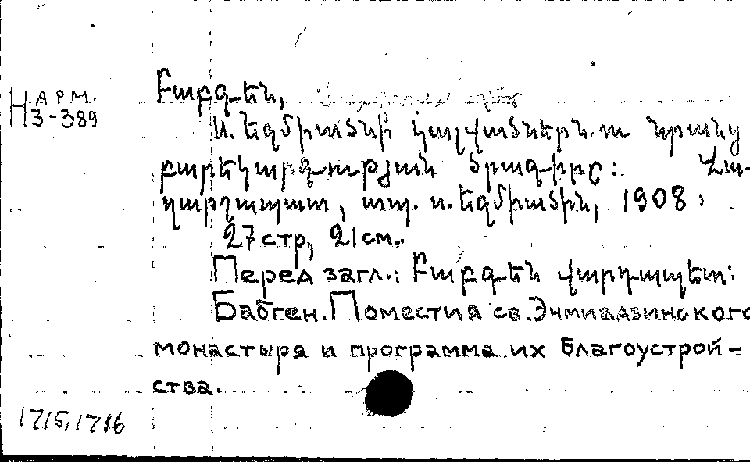 АРМ.
Н3-389
Բաբգեն,
Ս. Եզմիածնի կալվածներն ու նրանց
բարեկարգության ծրագիրը: Վա-
ղարշապատ, տպ. Ս. Եզմիածին, 1908:
27 стр, 21 см.
Перед загл.: Բաբգեն վարդապետ:
Бабген. Поместия св. Эчмиадзинского
монастыря и программа их благоустрой-
ства.